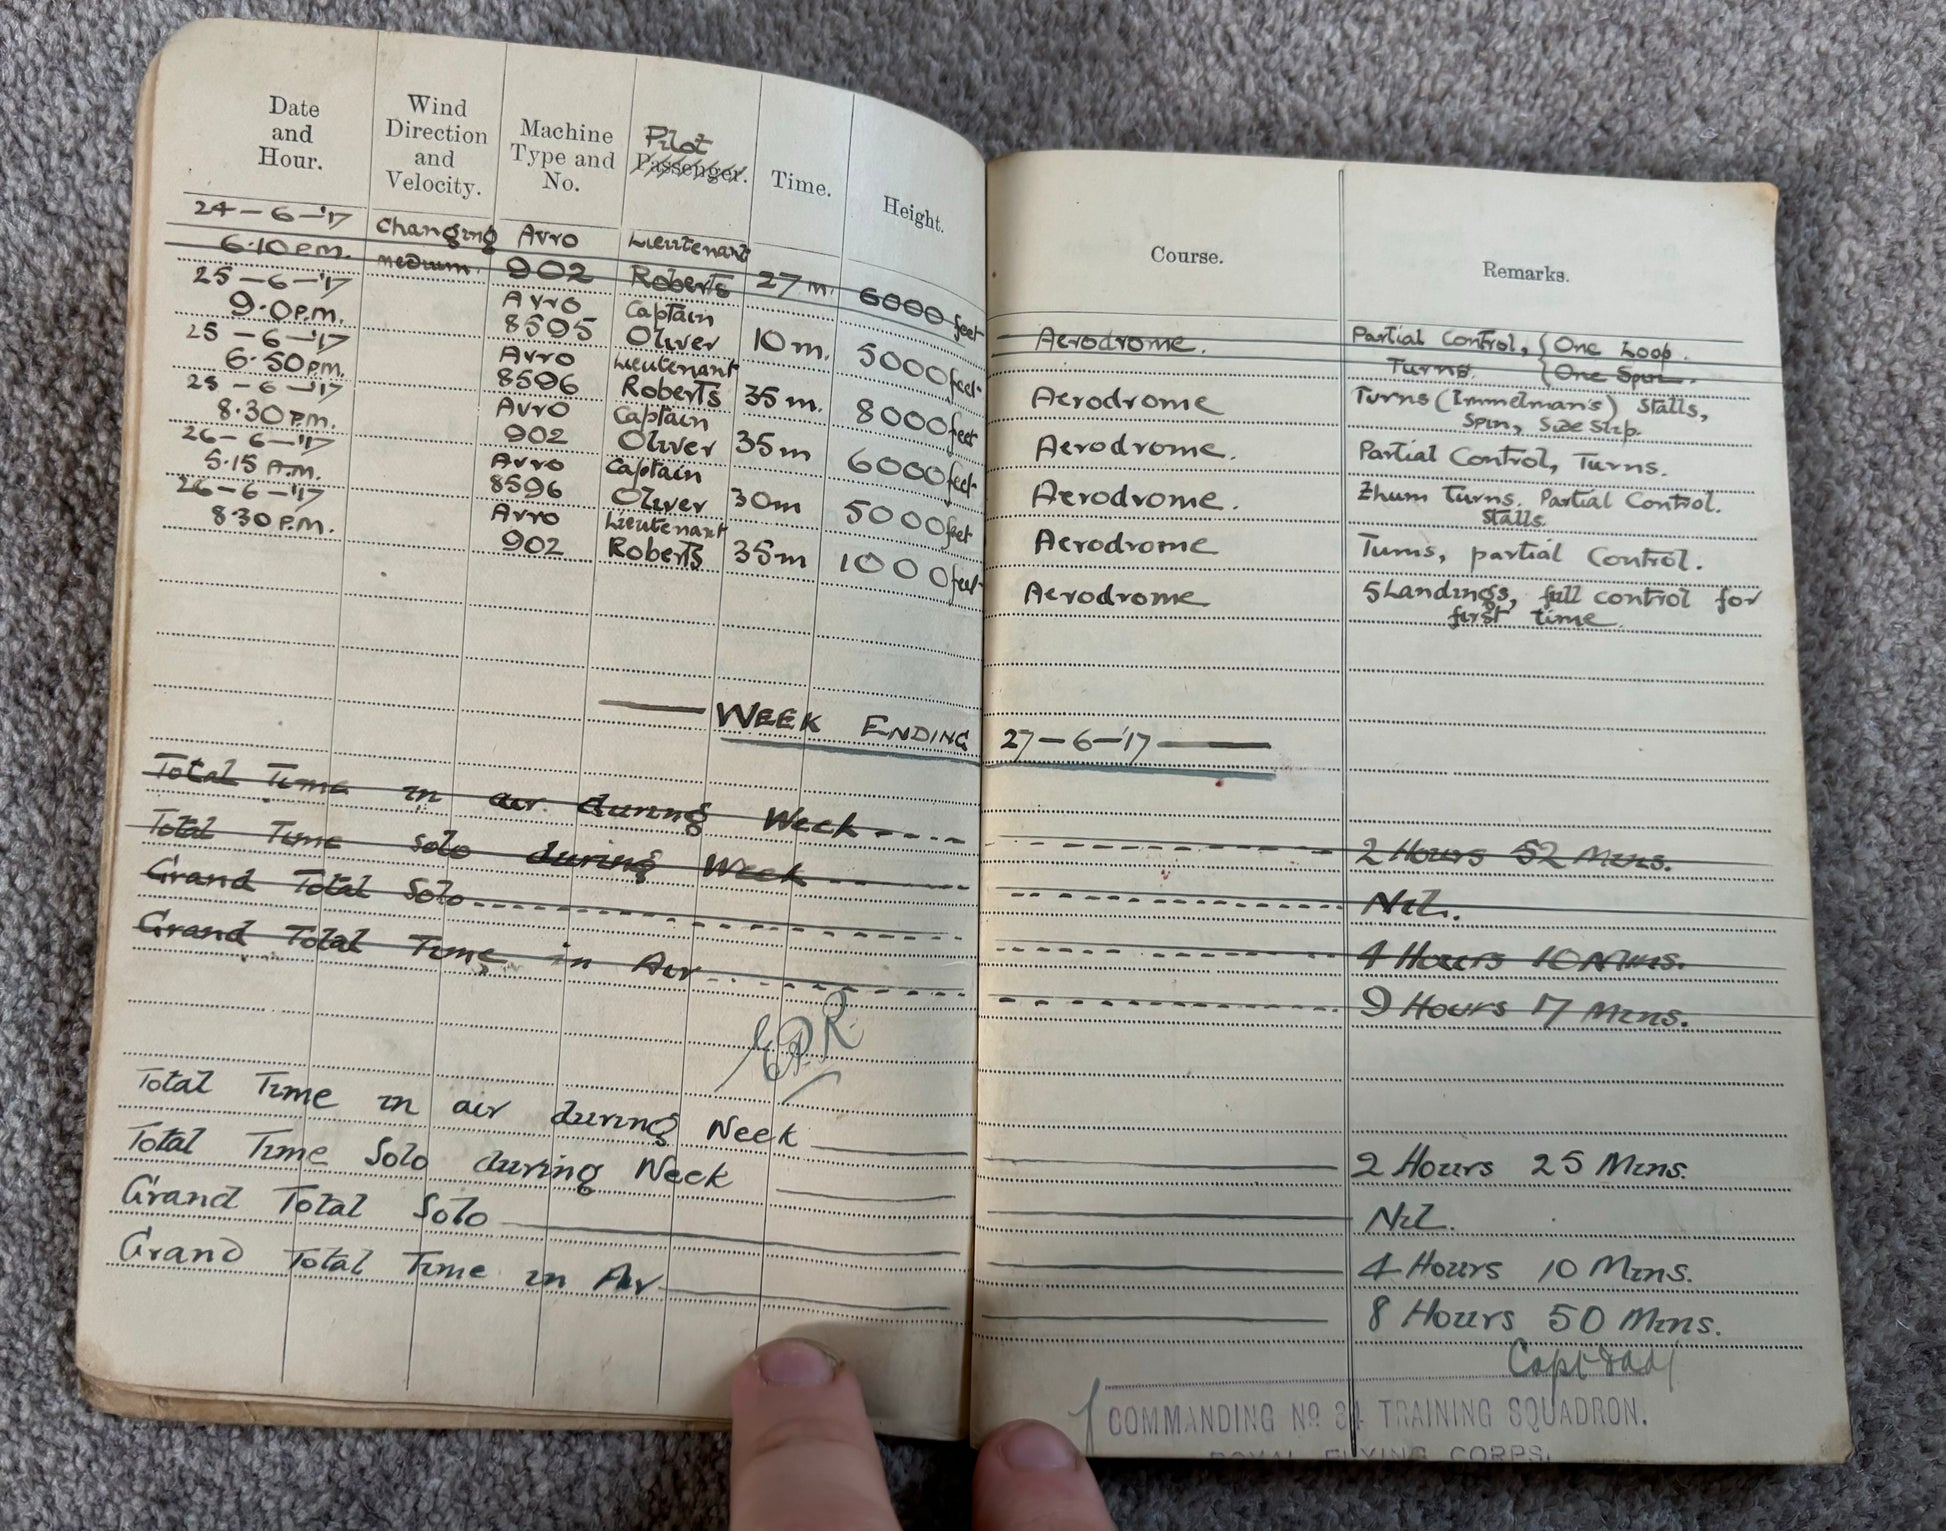 Date and Hour.
Wind Direction and Velocity.
Machine Type and No.
Pilot
Passenger.
Time.
Height.
24-6-'17 Changing Avro Lieutenant
6.10 P.M. medium. 902 Roberts 27 m. 6000 feet
25-6-'17 Avro Captain
9.0 P.M. 8595 Oliver 10 m. 5000 feet
25-6-'17 Avro Lieutenant
6.50 P.M. 8596 Roberts 35 m. 8000 feet
25-6-'17 Avro Captain
8.30 P.M. 902 Oliver 35 m 6000 feet
26-6-'17 Avro Captain
5.15 A.M. 8596 Oliver 30 m 5000 feet
26-6-'17 Avro Lieutenant
8.30 P.M. 902 Roberts 35 m 1000 feet
WEEK ENDING
Total Time in air during Week
Total Time Solo during Week
Grand Total Solo
Grand Total Time in Air
Total Time in air during Week
Total Time Solo during Week
Grand Total Solo
Grand Total Time in Air
Course. Remarks.
Aerodrome. Partial Control, { One Loop.
Turns. { One Spin.
Aerodrome Turns (Immelman's) Stalls,
Spin, Side Slip.
Aerodrome. Partial Control, Turns.
Aerodrome. Zhum Turns. Partial Control.
Stalls.
Aerodrome Turns, partial Control.
Aerodrome 5 Landings, full control for
first time.
27-6-'17
2 Hours 52 Mins.
Nil.
4 Hours 10 Mins.
9 Hours 17 Mins.
2 Hours 25 Mins.
Nil.
4 Hours 10 Mins.
8 Hours 50 Mins.
COMMANDING No 34 TRAINING SQUADRON.
ROYAL FLYING CORPS.